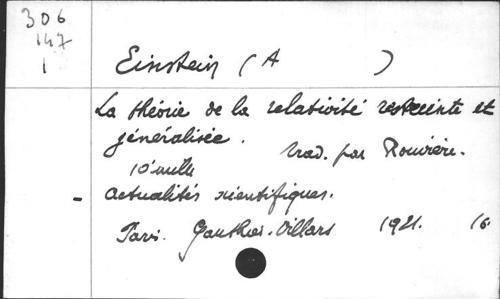 306
147
1
Einstein (A )
La théorie de la relativité restreinte et
généralisée. trad. par Rouvière.
10e mille
- Actualités scientifiques.
Paris. Gauthier-Villars 1921. 16